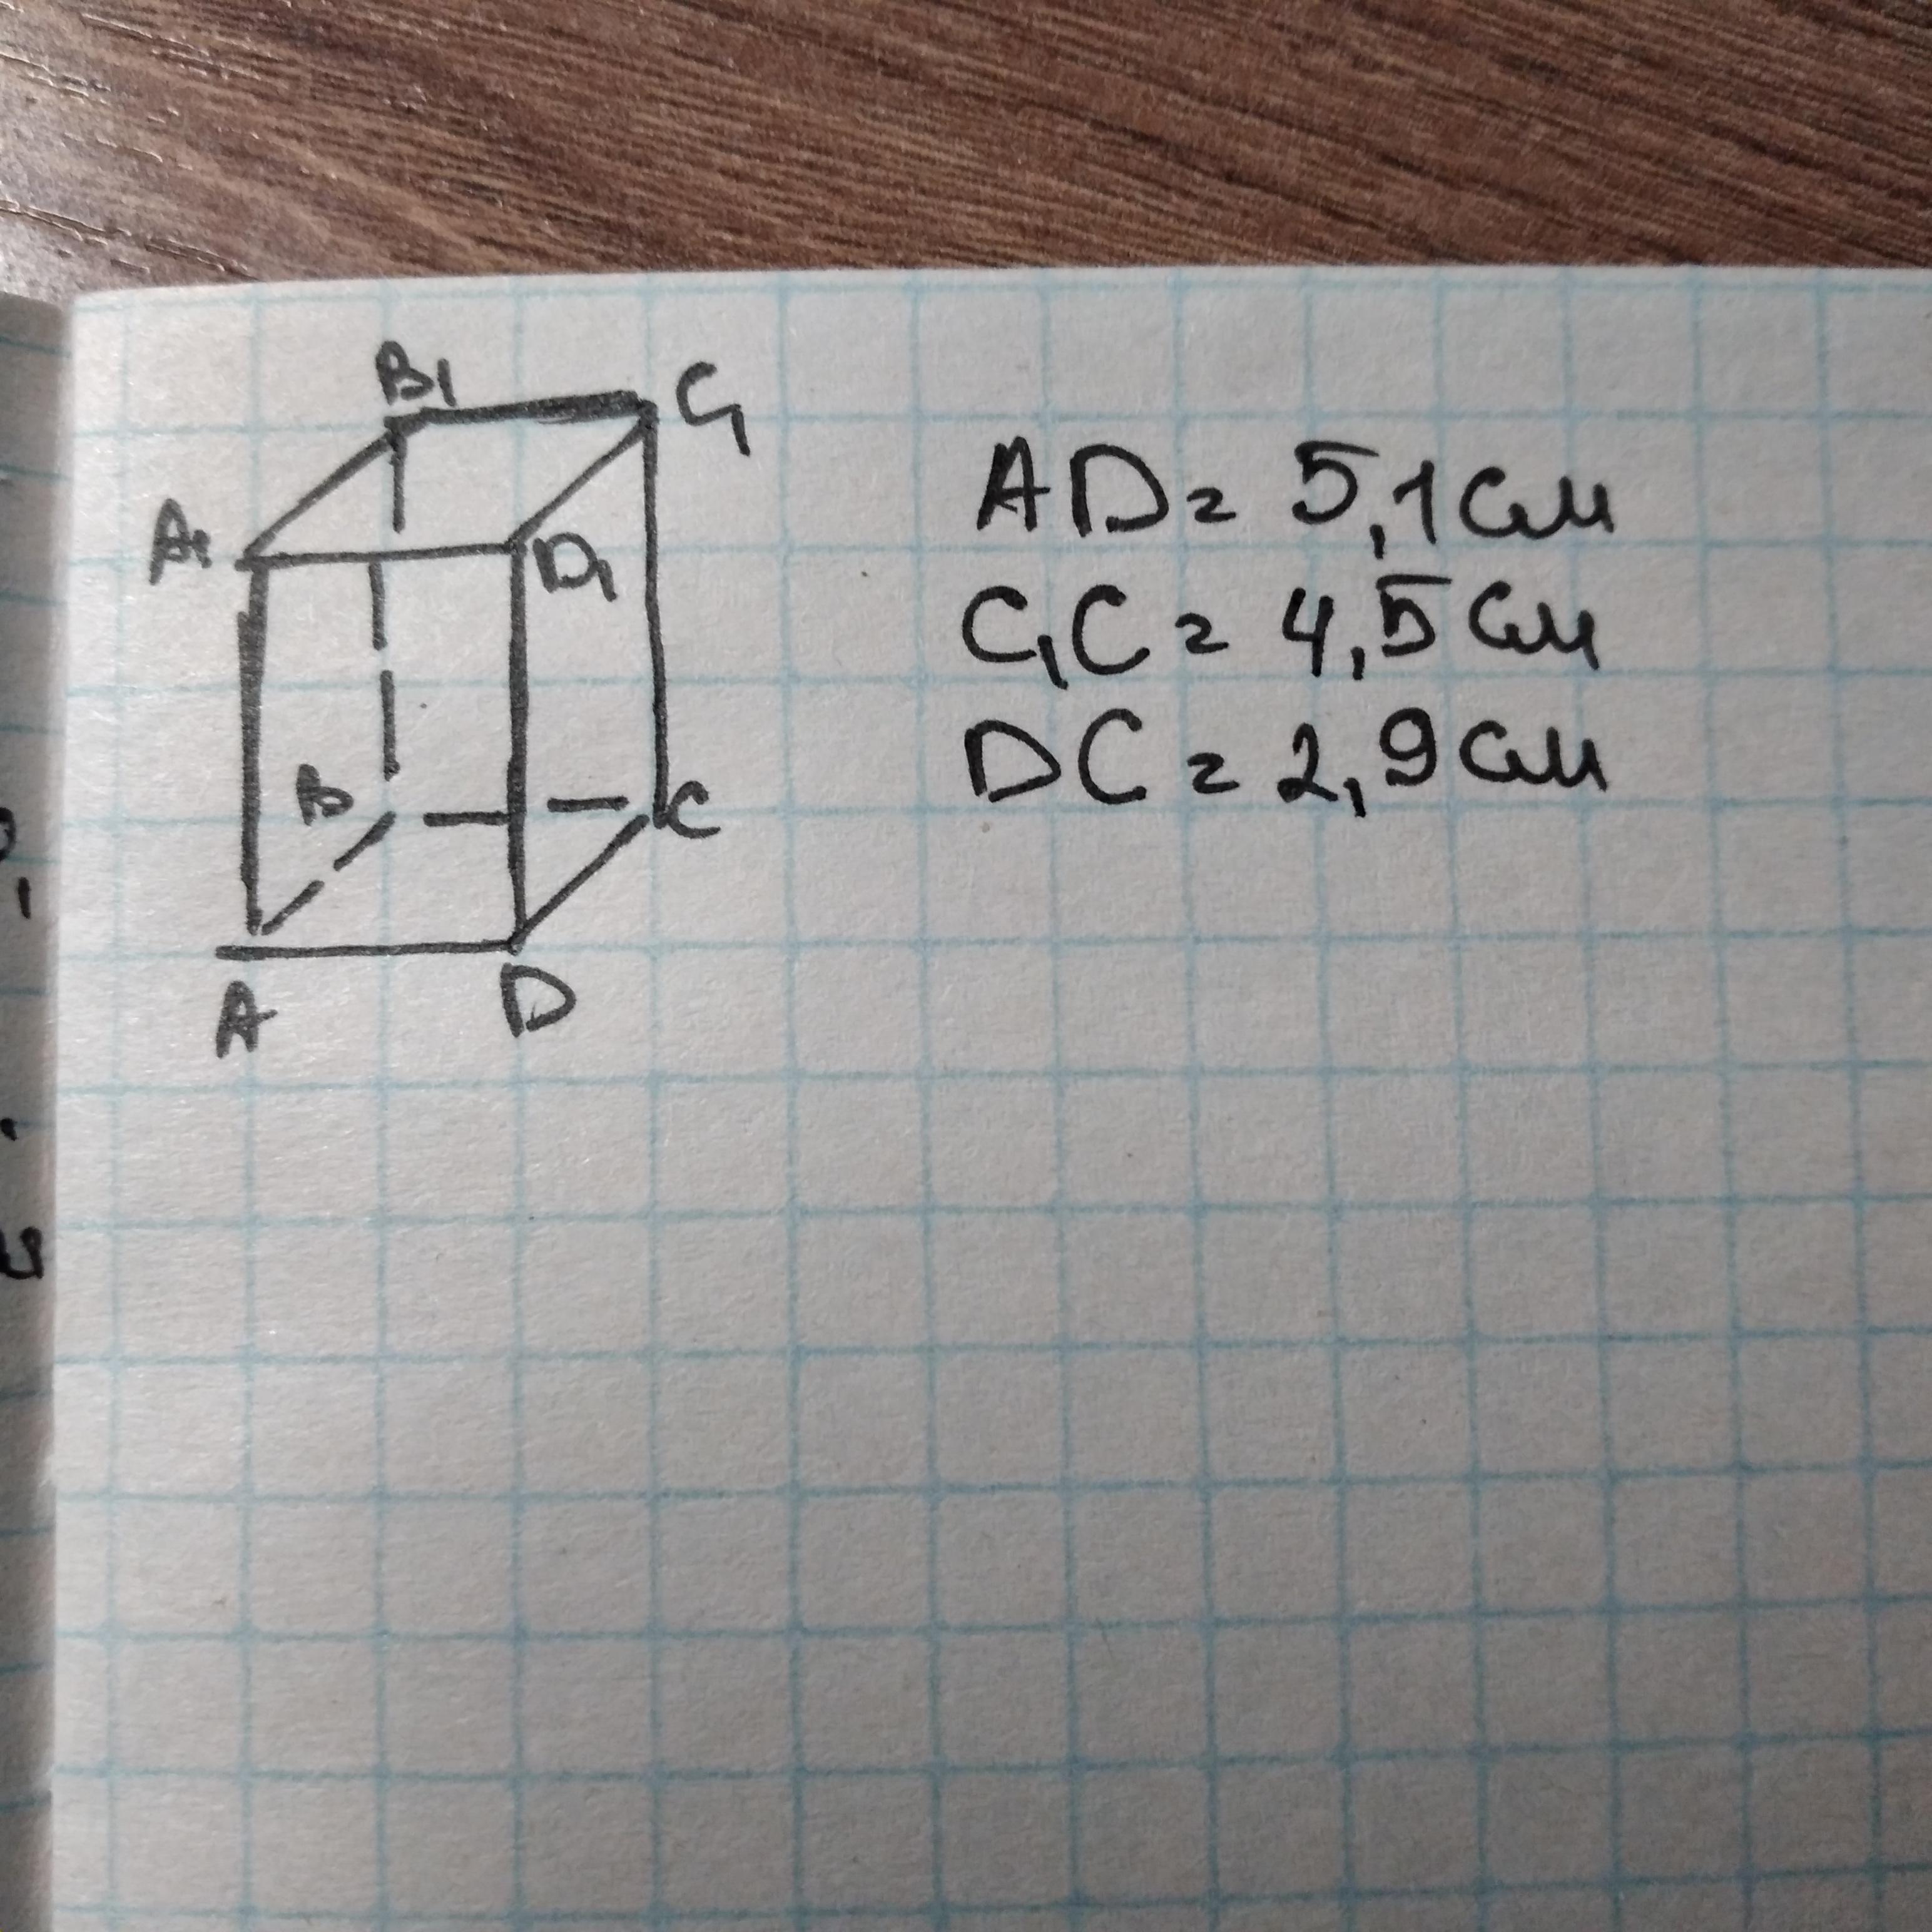 B₁ C₁
A₁ D₁
B C
A D
AD = 5,1 см
C₁C = 4,5 см
DC = 2,9 см